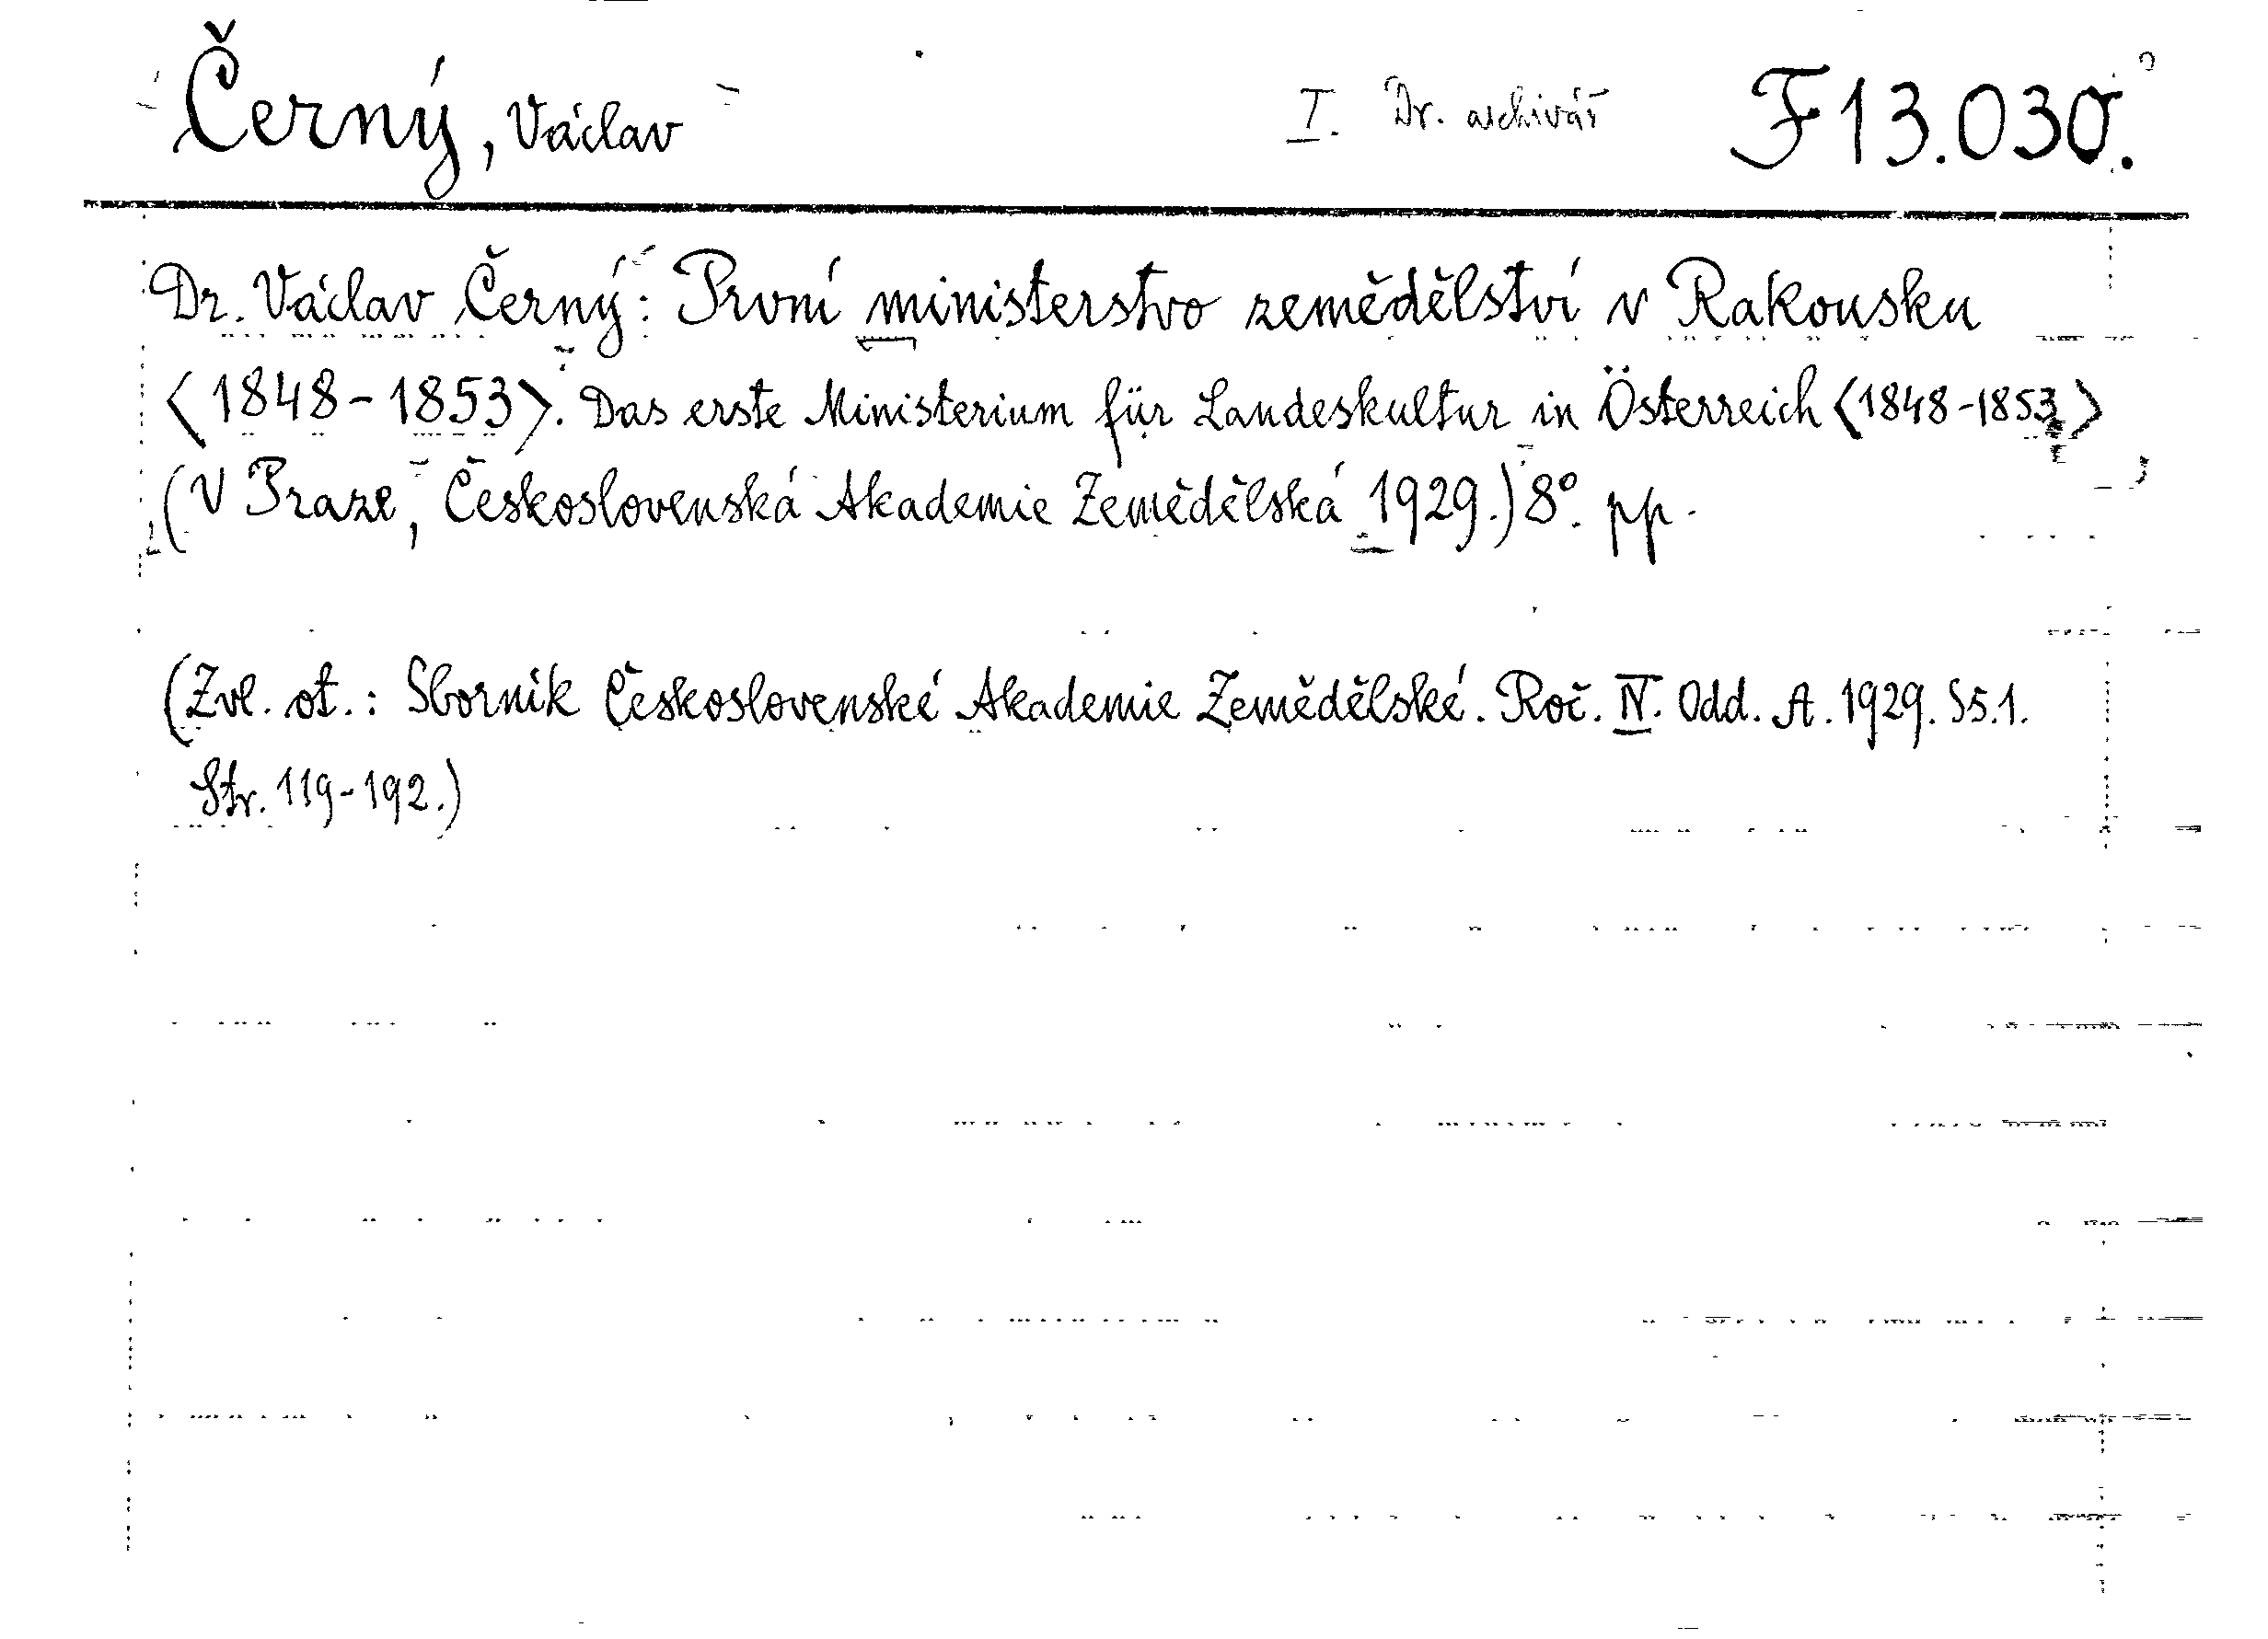 Černý, Václav I. Dr. archivář F 13.030.
Dr. Václav Černý: První ministerstvo zemědělství v Rakousku
<1848-1853>. Das erste Ministerium für Landeskultur in Österreich <1848-1853>
(V Praze, Československá Akademie Zemědělská 1929.) 8°. pp.
(Zvl. ot.: Sborník Československé Akademie Zemědělské. Roč. IV. Odd. A. 1929. S5.1.
Str. 119-192.)